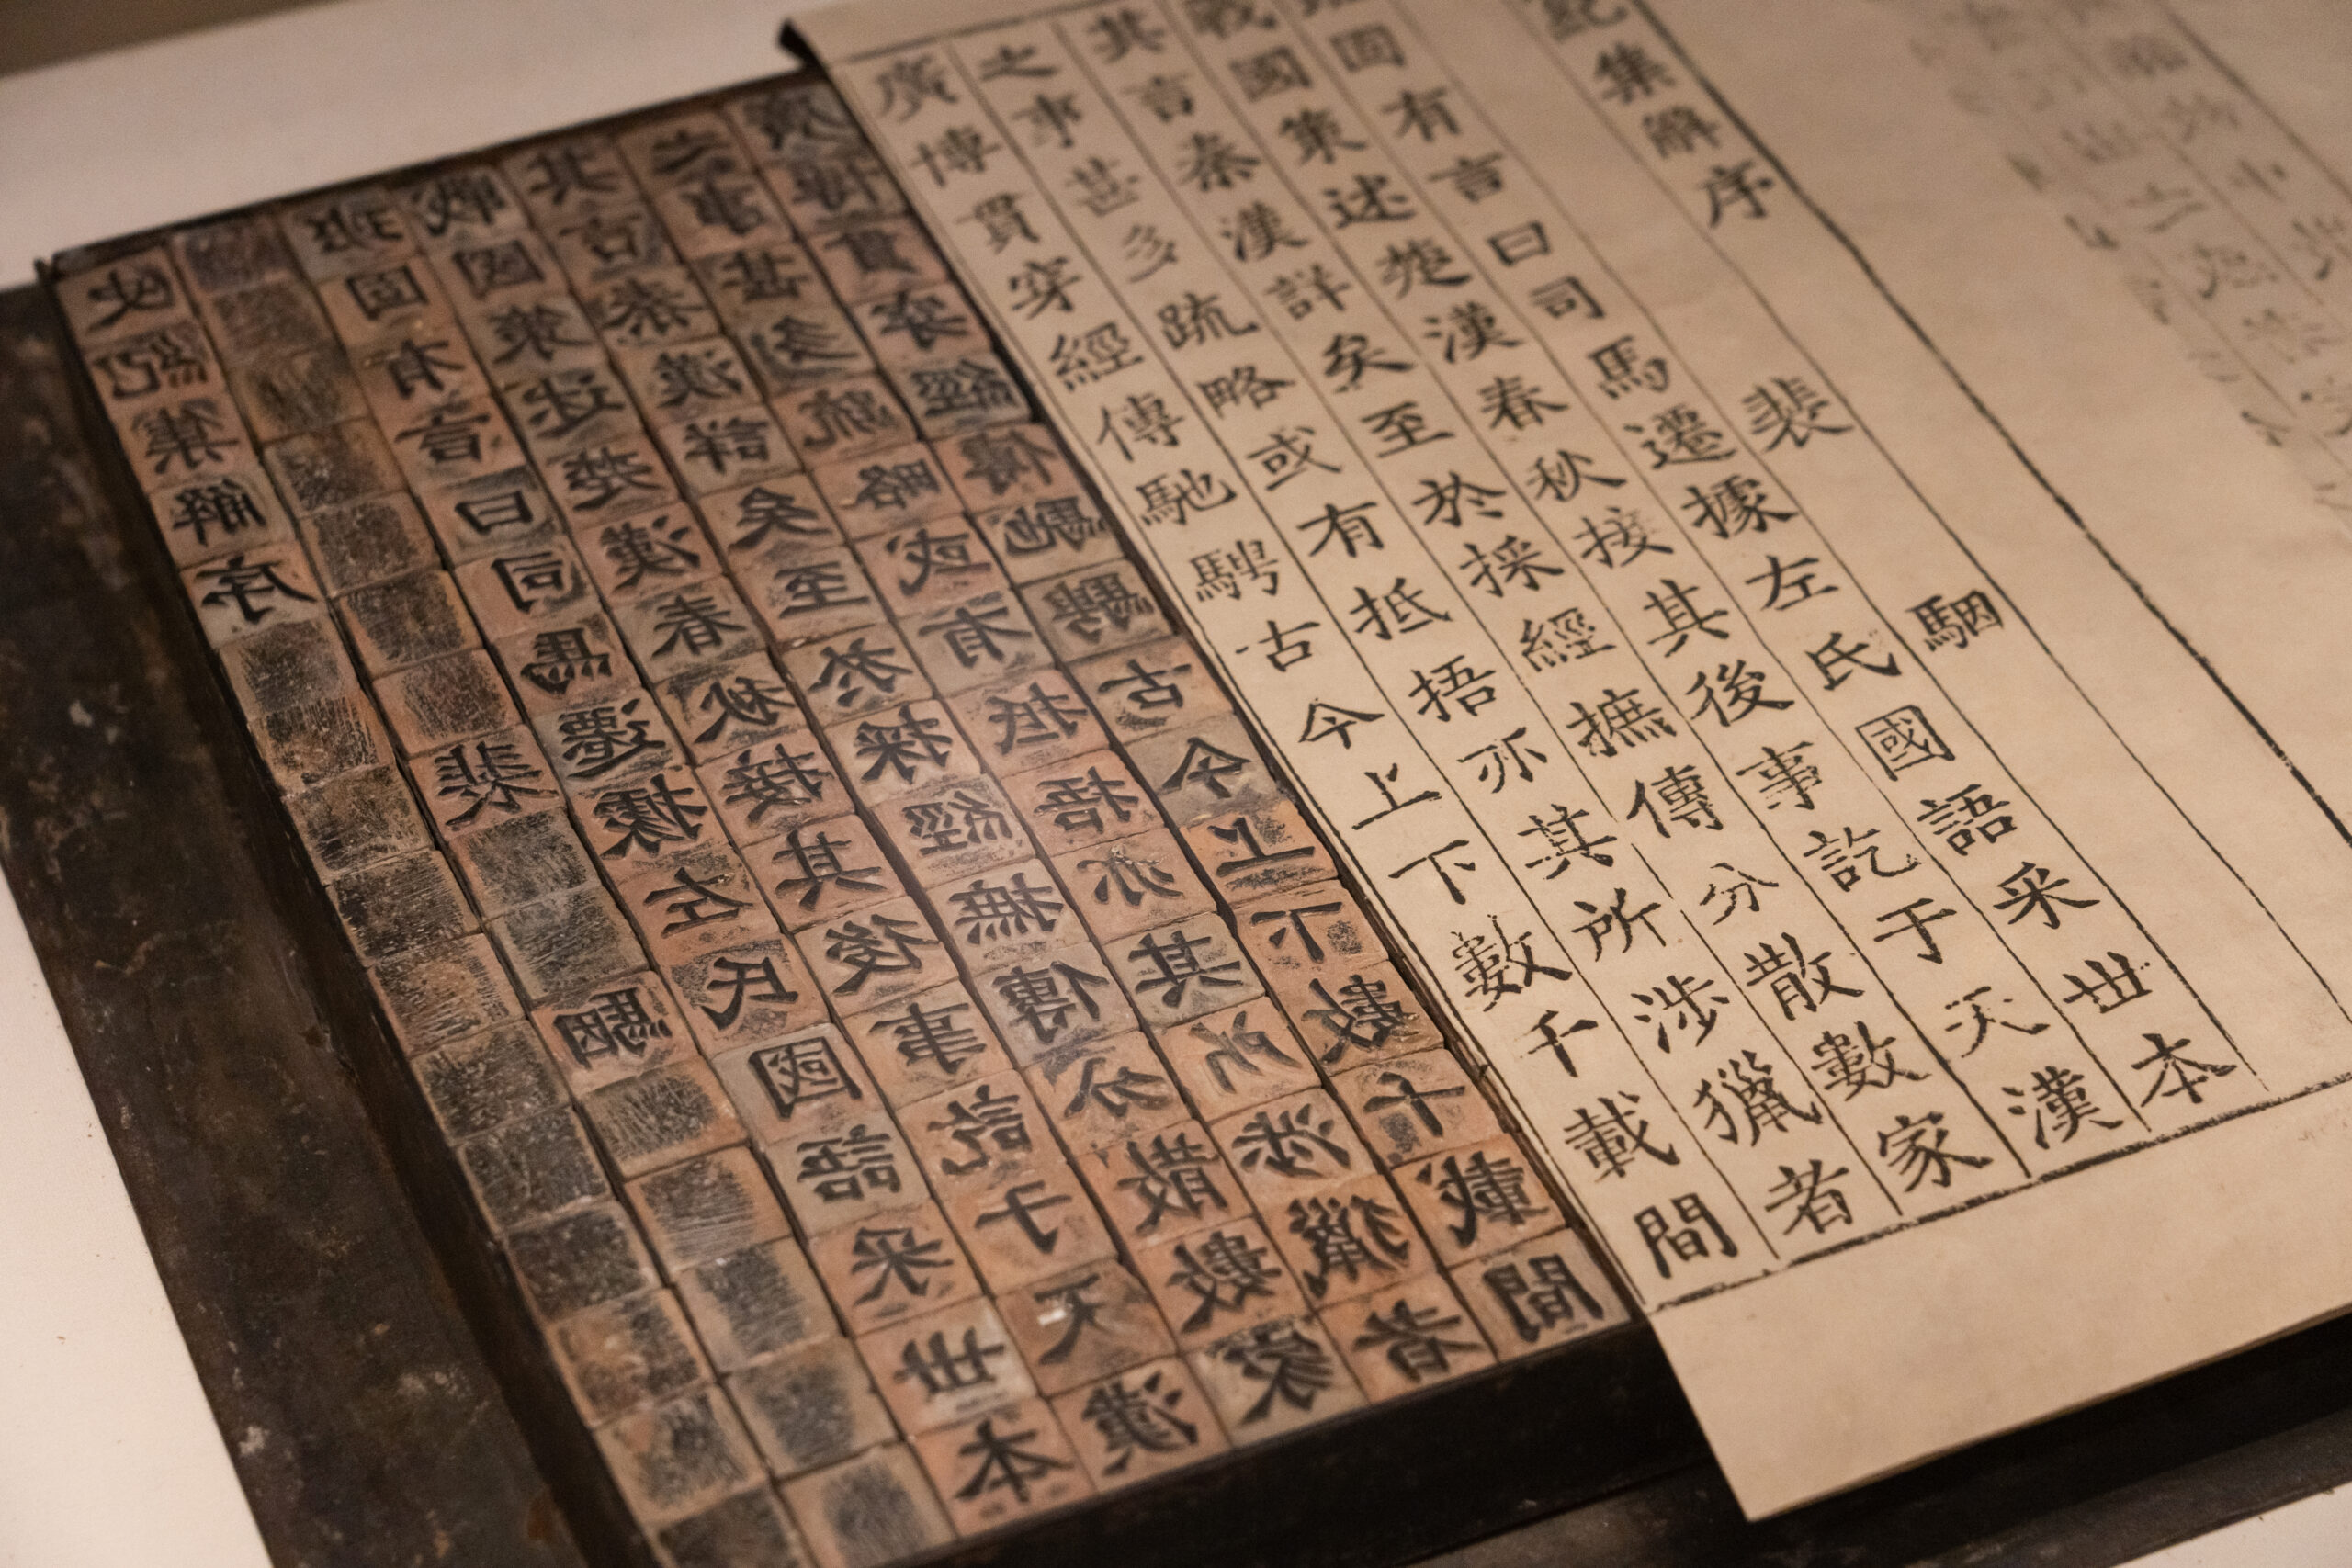 紀集解序
裴 駰
班固有言曰司馬遷據左氏國語采世本
戰國策述楚漢春秋接其後事訖于天漢
其言秦漢詳矣至於採經摭傳分散數家
之事甚多疏略或有抵捂亦其所涉獵者
廣博貫穿經傳馳騁古今上下數千載間
史紀集解序
裴 駰
班固有言曰司馬遷據左氏國語采世本
戰國策述楚漢春秋接其後事訖于天漢
其言秦漢詳矣至於採經摭傳分散數家
之事甚多疏略或有抵捂亦其所涉獵者
廣博貫穿經傳馳騁古今上下數千載間